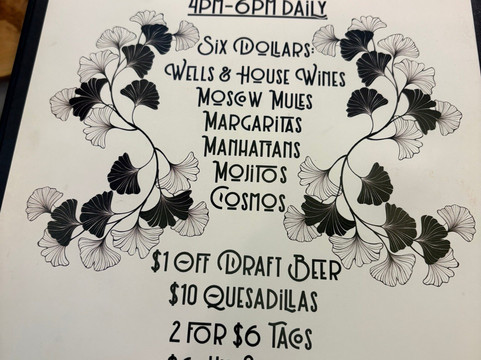 4PM-6PM DAILY
SIX DOLLARS:
WELLS & HOUSE WINES
MOSCOW MULES
MARGARITAS
MANHATTANS
MOJITOS
COSMOS
$1 OFF DRAFT BEER
$10 QUESADILLAS
2 FOR $6 TACOS